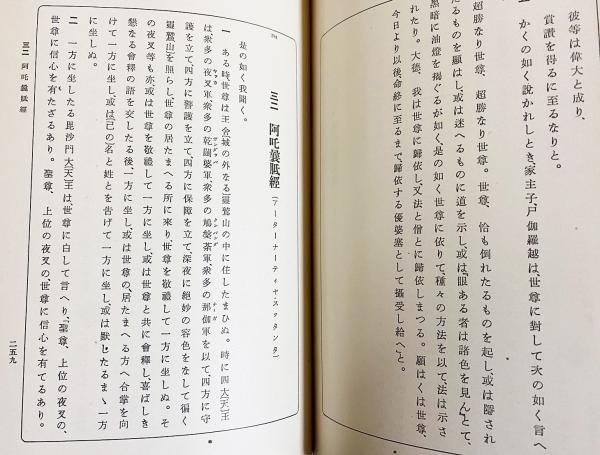 彼等は偉大と成り、
賞讃を得るに至るなりと。
かくの如く說かれしとき、家主子尸伽羅越は、世尊に對して次の如く言へ
り、
超勝なり世尊、超勝なり世尊。世尊、恰も倒れたるものを起し、或は覆され
たるものを顯はし、或は迷へるものに道を示し、或は『眼ある者は諸色を見ん』とて、
黑暗に油燈を揭ぐるが如く、是の如く世尊に依りて、種々の方法を以て、法は示さ
れたり。大德、我は世尊に歸依し、又法と僧とに歸依しまつる。願はくは世尊、
今日より以後、命終に至るまで、歸依する優婆塞として攝受し給へ』と。
三二 阿吒曩胝經（アーターナーティヤ・スッタンタ）
是の如く我聞く。
一 ある時、世尊は王舍城の外なる靈鷲山の中に住したまひぬ。時に四大天王
は、衆多の夜叉軍、衆多の乾闥婆軍、衆多の鳩槃荼軍、衆多の那伽軍を以て、四方に守
護を立て四方に警護を立て、四方に保障を立て、深夜に絕妙の容色をなして徧く
靈鷲山を照らし、世尊の居たまへる所に來り、世尊を敬禮して一方に坐しぬ。そ
の夜叉等も亦、或は世尊を敬禮して一方に坐し、或は世尊と共に會釋し、喜ばしき
懇なる會釋の語を交したる後、一方に坐し、或は世尊の居たまへる方へ合掌を向
けて一方に坐し、或は己の名と姓とを吿げて一方に坐し、或は默したるまゝ一方
に坐しぬ。
二 一方に坐したる毘沙門大天王は、世尊に白して言へり、『聖尊、上位の夜叉の、
世尊に信心を有たざるあり。聖尊、上位の夜叉の、世尊に信心を有てるあり。
三二 阿吒曩胝經
二五九